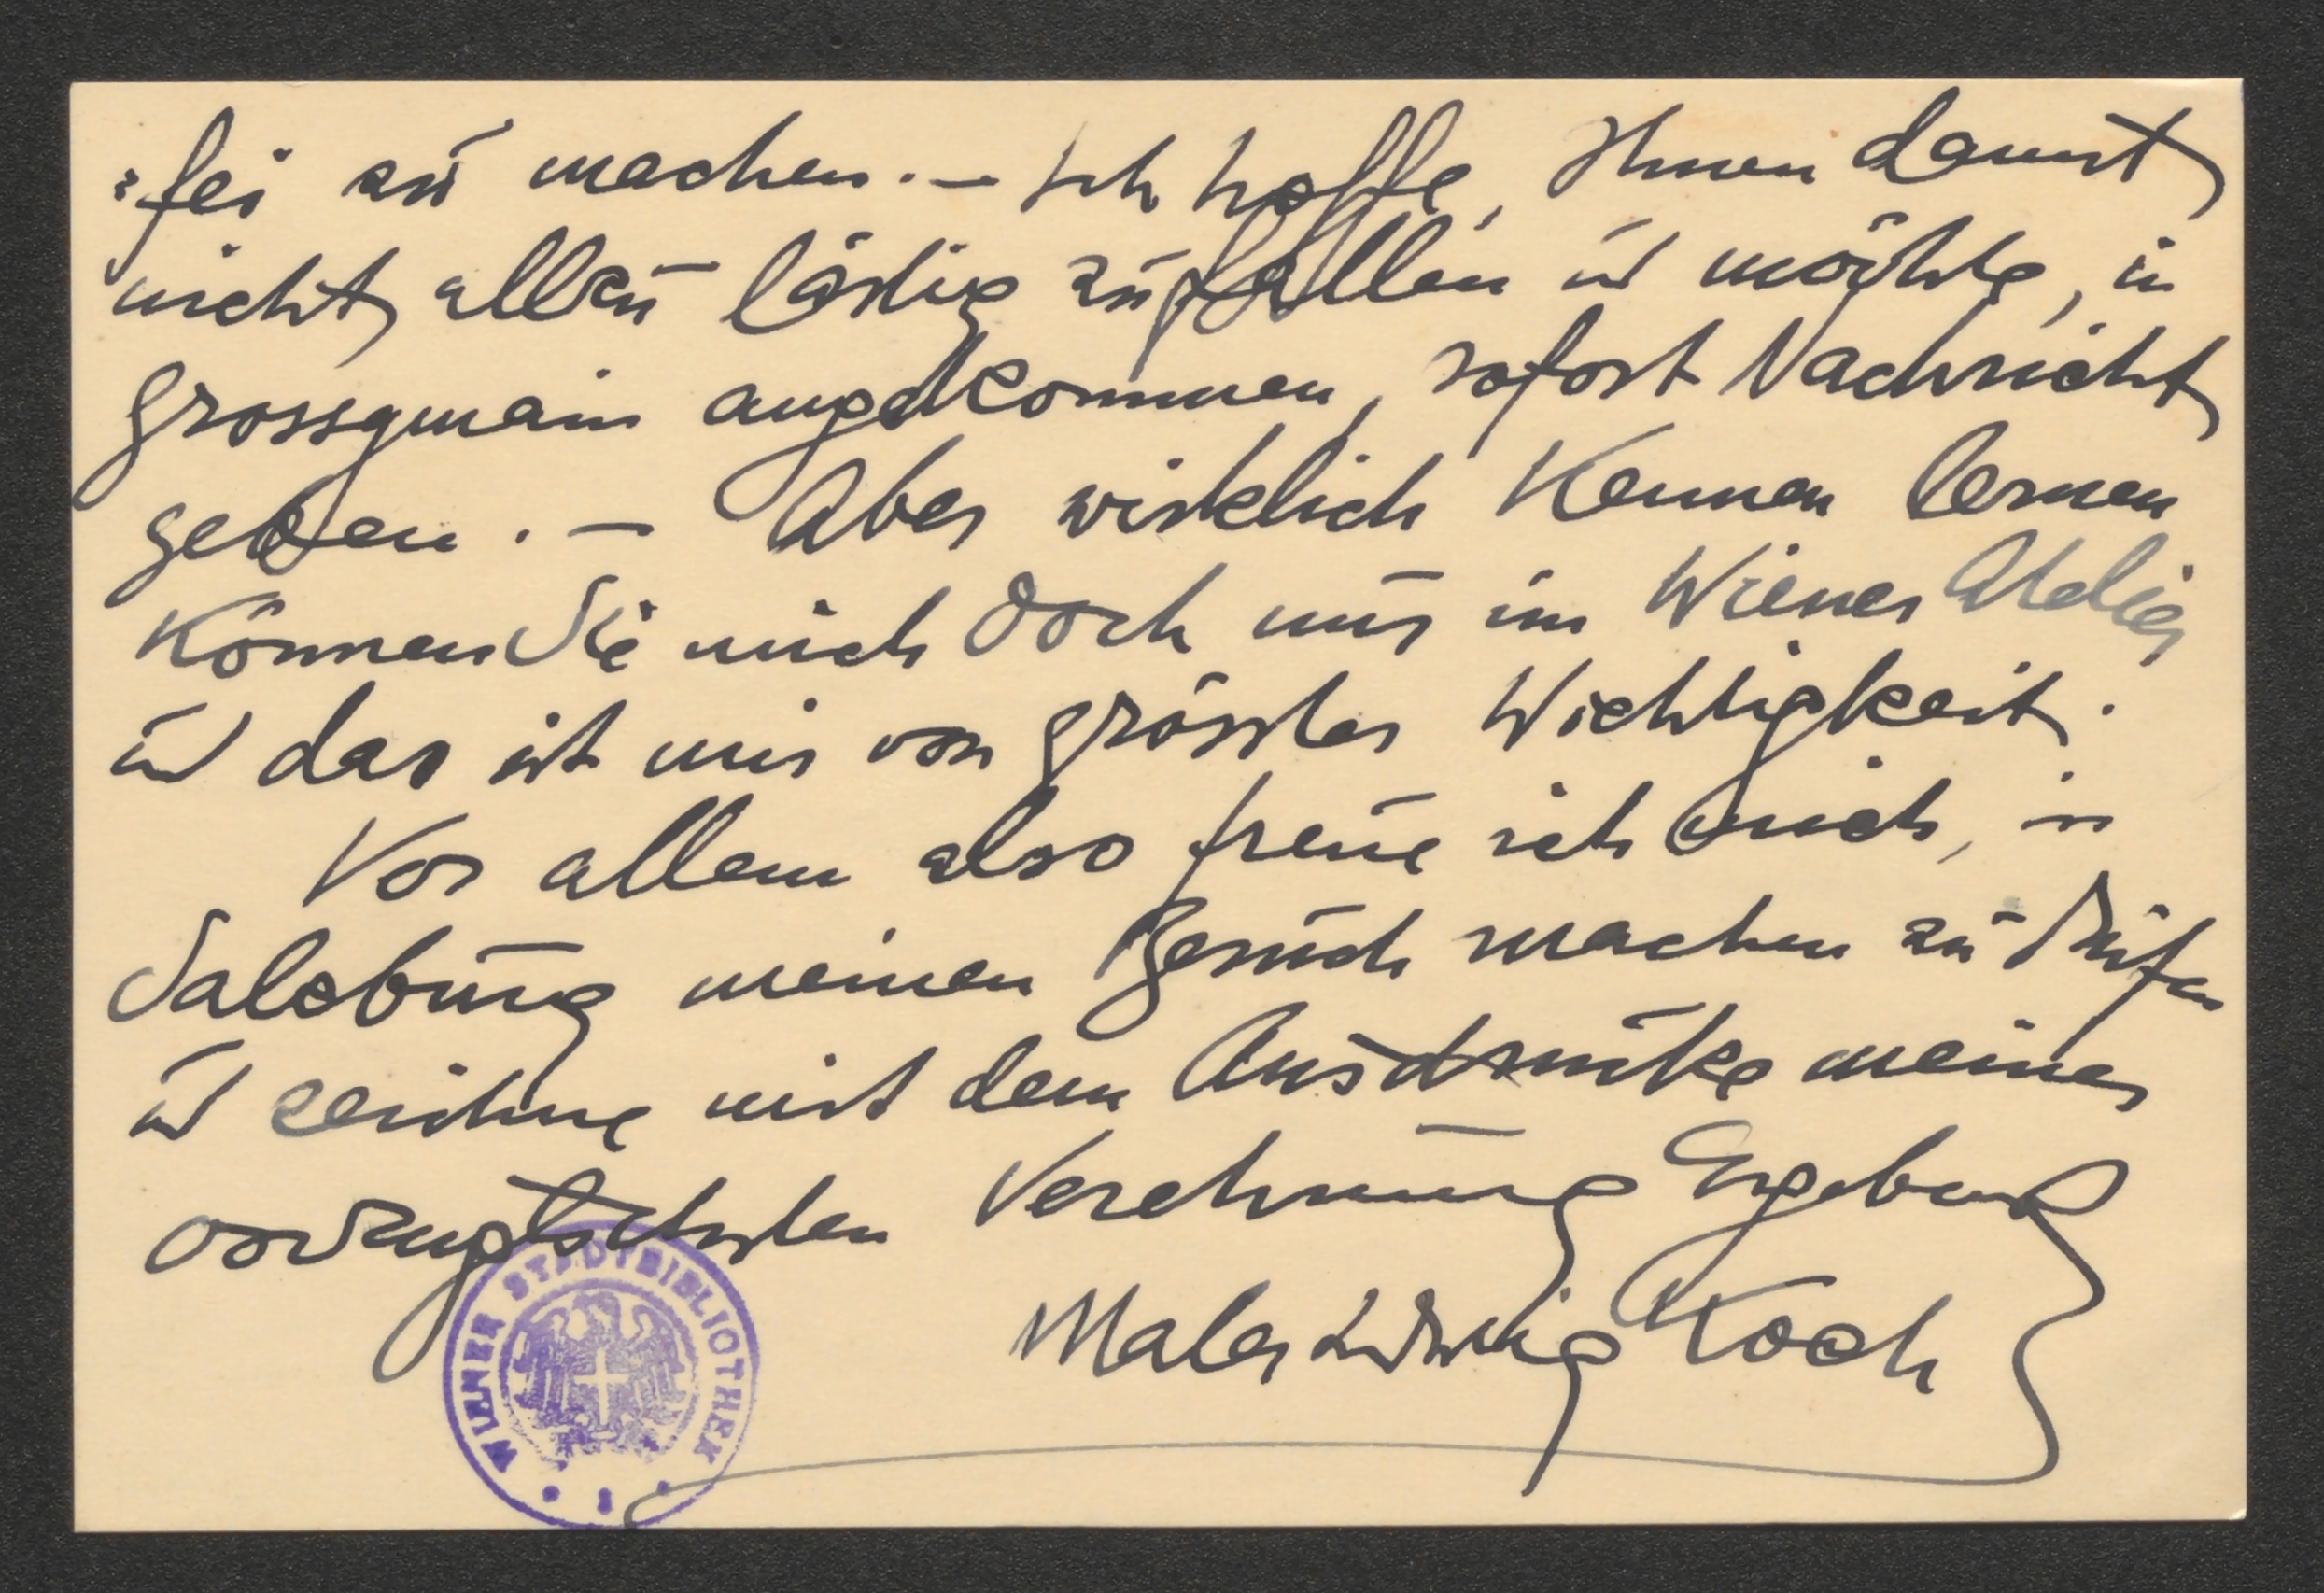 :fei zu machen. – Ich hoffe, Ihnen damit
nicht allzu lästig zu fallen u möchte, in
Grossgmain angekommen, sofort Nachricht
geben. – Aber wirklich Kennen lernen
Können Sie mich doch nur im Wiener Atelier
u das ist mir von grösster Wichtigkeit.
Vor allem also freue ich mich, in
Salzburg meinen Besuch machen zu dürfen
u zeichne mit dem Ausdrucke meiner
vorzüglichsten Verehrung Ergebenst
Maler Ludwig Koch
WIENER STADTBIBLIOTHEK